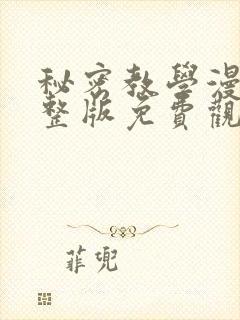 秘密教學漫
整版免費觀
菲兜